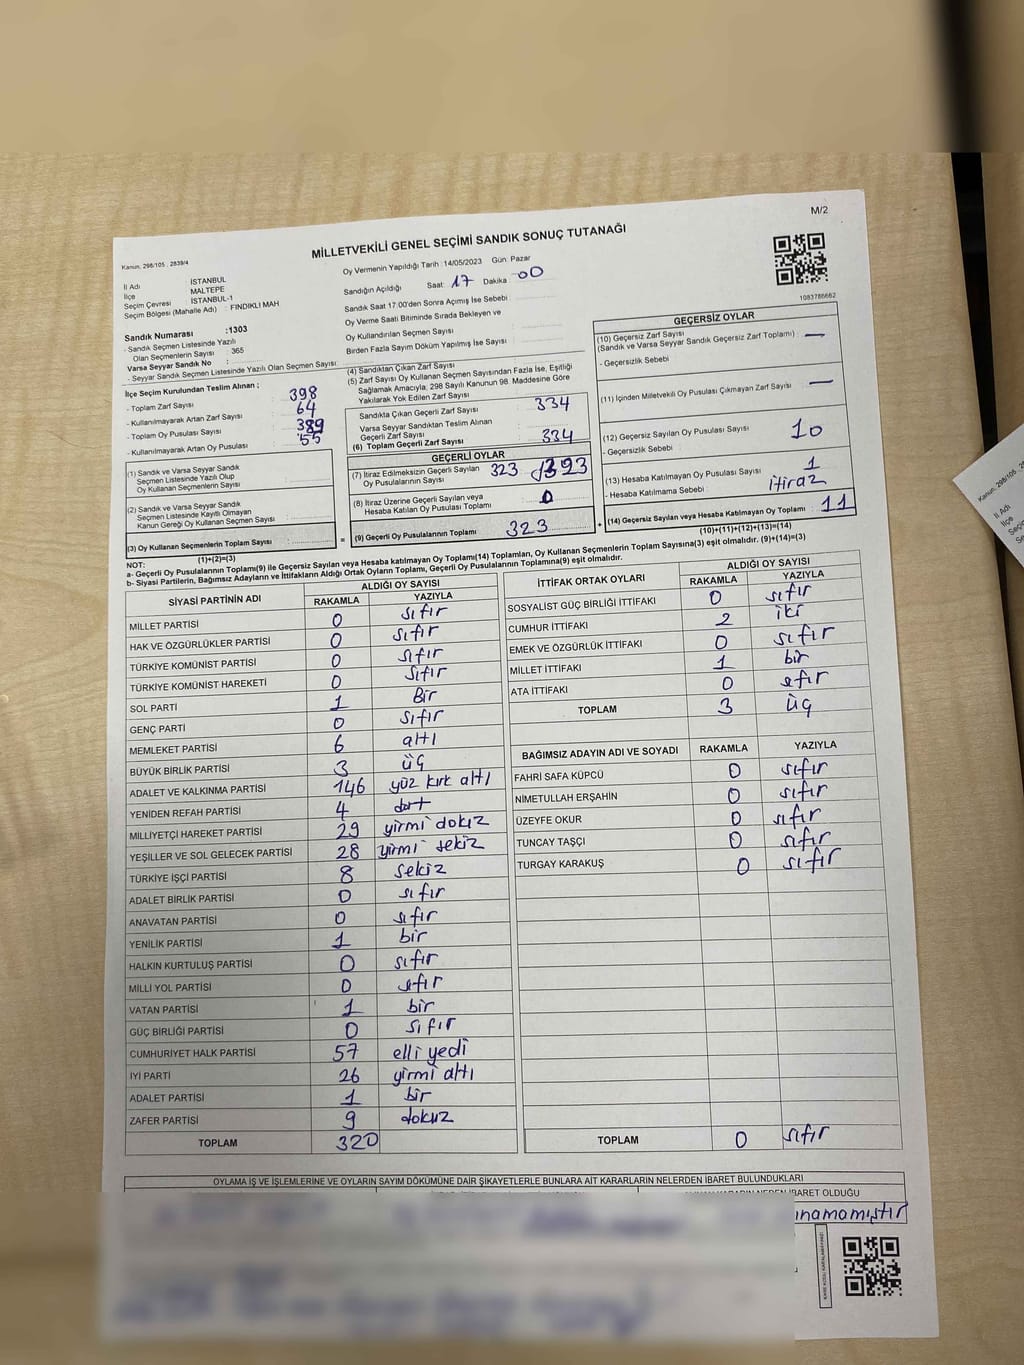 M/2
MİLLETVEKİLİ GENEL SEÇİMİ SANDIK SONUÇ TUTANAĞI
Kanun: 298/105 , 2839/4
Oy Vermenin Yapıldığı Tarih : 14/05/2023 Gün: Pazar
İl Adı İSTANBUL
İlçe MALTEPE
Seçim Çevresi : İSTANBUL-1
Seçim Bölgesi (Mahalle Adı) : FINDIKLI MAH
Sandığın Açıldığı Saat: 17 Dakika 00
Sandık Saat 17:00'den Sonra Açımış İse Sebebi
Oy Verme Saati Bitiminde Sırada Bekleyen ve
Oy Kullandırılan Seçmen Sayısı
Birden Fazla Sayım Döküm Yapılmış İse Sayısı
1083786662
Sandık Numarası :1303
- Sandık Seçmen Listesinde Yazılı
Olan Seçmenlerin Sayısı : 365
Varsa Seyyar Sandık No :
- Seyyar Sandık Seçmen Listesinde Yazılı Olan Seçmen Sayısı :
İlçe Seçim Kurulundan Teslim Alınan ;
- Toplam Zarf Sayısı : 398
- Kullanılmayarak Artan Zarf Sayısı : 64
- Toplam Oy Pusulası Sayısı : 389
- Kullanılmayarak Artan Oy Pusulası : 55
(1) Sandık ve Varsa Seyyar Sandık
Seçmen Listesinde Yazılı Olup
Oy Kullanan Seçmenlerin Sayısı :
(2) Sandık ve Varsa Seyyar Sandık
Seçmen Listesinde Kayıtlı Olmayan
Kanun Gereği Oy Kullanan Seçmen Sayısı :
(3) Oy Kullanan Seçmenlerin Toplam Sayısı :
(1)+(2)=(3)
(4) Sandıktan Çıkan Zarf Sayısı
(5) Zarf Sayısı Oy Kullanan Seçmen Sayısından Fazla İse, Eşitliği
Sağlamak Amacıyla, 298 Sayılı Kanunun 98. Maddesine Göre
Yakılarak Yok Edilen Zarf Sayısı :
Sandıkta Çıkan Geçerli Zarf Sayısı : 334
Varsa Seyyar Sandıktan Teslim Alınan
Geçerli Zarf Sayısı :
(6) Toplam Geçerli Zarf Sayısı : 334
GEÇERLİ OYLAR
(7) İtiraz Edilmeksizin Geçerli Sayılan
Oy Pusulalarının Sayısı : 323
(8) İtiraz Üzerine Geçerli Sayılan veya
Hesaba Katılan Oy Pusulası Toplamı : 0
= (9) Geçerli Oy Pusulalarının Toplamı : 323 +
GEÇERSİZ OYLAR
(10) Geçersiz Zarf Sayısı
(Sandık ve Varsa Seyyar Sandık Geçersiz Zarf Toplamı) : —
- Geçersizlik Sebebi
(11) İçinden Milletvekili Oy Pusulası Çıkmayan Zarf Sayısı : —
(12) Geçersiz Sayılan Oy Pusulası Sayısı : 10
- Geçersizlik Sebebi :
(13) Hesaba Katılmayan Oy Pusulası Sayısı : 1
- Hesaba Katılmama Sebebi : itiraz
(14) Geçersiz Sayılan veya Hesaba Katılmayan Oy Toplamı : 11
(10)+(11)+(12)+(13)=(14)
NOT:
a- Geçerli Oy Pusulalarının Toplamı(9) ile Geçersiz Sayılan veya Hesaba Katılmayan Oy Toplamı(14) Toplamları, Oy Kullanan Seçmenlerin Toplam Sayısına(3) eşit olmalıdır. (9)+(14)=(3)
b- Siyasi Partilerin, Bağımsız Adayların ve İttifakların Aldığı Ortak Oyların Toplamı, Geçerli Oy Pusulalarının Toplamına(9) eşit olmalıdır.
SİYASİ PARTİNİN ADI ALDIĞI OY SAYISI
RAKAMLA YAZIYLA
MİLLET PARTİSİ 0 sıfır
HAK VE ÖZGÜRLÜKLER PARTİSİ 0 sıfır
TÜRKİYE KOMÜNİST PARTİSİ 0 sıfır
TÜRKİYE KOMÜNİST HAREKETİ 0 sıfır
SOL PARTİ 1 Bir
GENÇ PARTİ 0 sıfır
MEMLEKET PARTİSİ 6 altı
BÜYÜK BİRLİK PARTİSİ 3 üç
ADALET VE KALKINMA PARTİSİ 146 yüz kırk altı
YENİDEN REFAH PARTİSİ 4 dört
MİLLİYETÇİ HAREKET PARTİSİ 29 yirmi dokız
YEŞİLLER VE SOL GELECEK PARTİSİ 28 yirmi sekiz
TÜRKİYE İŞÇİ PARTİSİ 8 sekiz
ADALET BİRLİK PARTİSİ 0 sıfır
ANAVATAN PARTİSİ 0 sıfır
YENİLİK PARTİSİ 1 bir
HALKIN KURTULUŞ PARTİSİ 0 sıfır
MİLLİ YOL PARTİSİ 0 sıfır
VATAN PARTİSİ 1 bir
GÜÇ BİRLİĞİ PARTİSİ 0 sıfır
CUMHURİYET HALK PARTİSİ 57 elli yedi
İYİ PARTİ 26 yirmi altı
ADALET PARTİSİ 1 bir
ZAFER PARTİSİ 9 dokuz
TOPLAM 320
İTTİFAK ORTAK OYLARI ALDIĞI OY SAYISI
RAKAMLA YAZIYLA
SOSYALİST GÜÇ BİRLİĞİ İTTİFAKI 0 sıfır
CUMHUR İTTİFAKI 2 iki
EMEK VE ÖZGÜRLÜK İTTİFAKI 0 sıfır
MİLLET İTTİFAKI 1 bir
ATA İTTİFAKI 0 sıfır
TOPLAM 3 üç
BAĞIMSIZ ADAYIN ADI VE SOYADI RAKAMLA YAZIYLA
FAHRİ SAFA KÜPCÜ 0 sıfır
NİMETULLAH ERŞAHİN 0 sıfır
ÜZEYFE OKUR 0 sıfır
TUNCAY TAŞÇI 0 sıfır
TURGAY KARAKUŞ 0 sıfır
TOPLAM 0 sıfır
OYLAMA İŞ VE İŞLEMLERİNE VE OYLARIN SAYIM DÖKÜMÜNE DAİR ŞİKAYETLERLE BUNLARA AİT KARARLARIN NELERDEN İBARET BULUNDUKLARI
NEDEN İBARET OLDUĞU
ınamamıştır
Kanun: 298/105
İl Adı
İlçe